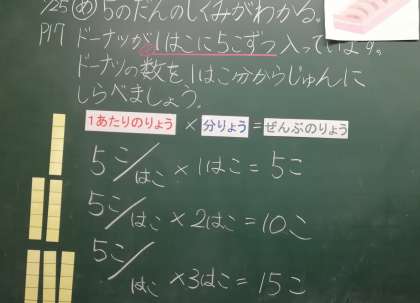 1/25 め 5のだんのしくみがわかる。
P17 ドーナツが1はこに5こずつ入っています。
ドーナツの数を1はこ分からじゅんに
しらべましょう。
1あたりのりょう × 分りょう = ぜんぶのりょう
5こ/はこ × 1はこ = 5こ
5こ/はこ × 2はこ = 10こ
5こ/はこ × 3はこ = 15こ